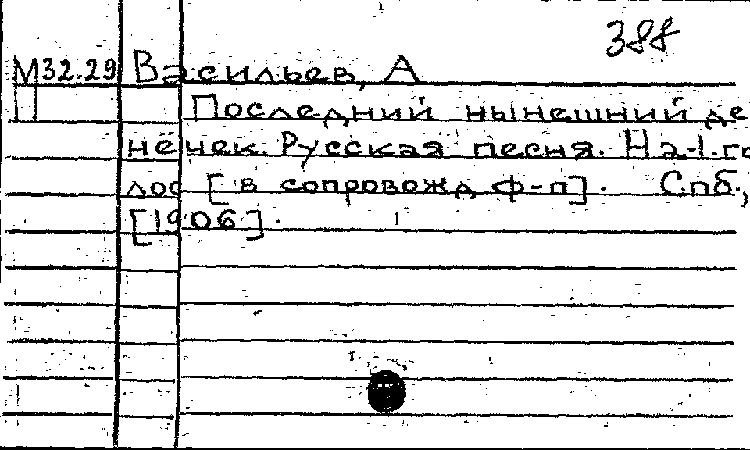 388
М32.29 Васильев, А
П Последний нынешний де
нёчек. Русская песня. На-1-го
лос [в сопровожд ф-п]. Спб.,
[1906].